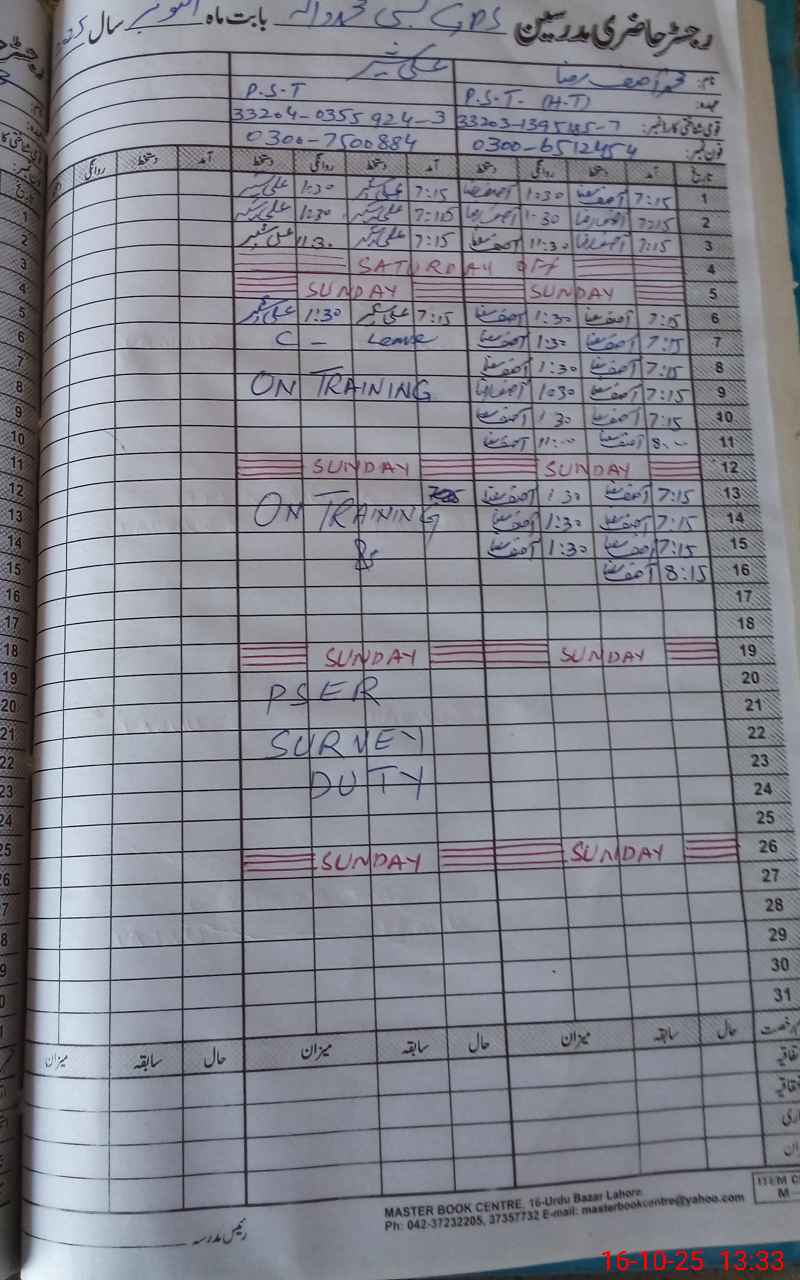 رجسٹر حاضری مدرسین GPS بستی بابت ماہ اکتوبر سال
نام: محمد آصف رضا علی شیر
عہدہ: P.S.T. (H.T) P.S.T
قومی شناختی کارڈ نمبر: 33203-1395 33204-0355924-3
فون نمبر: 0300-6512454 0300-7500884
تاریخ آمد دستخط روانگی دستخط آمد دستخط روانگی دستخط آمد دستخط روانگی
1 7:15 آصف رضا 1:30 آصف رضا 7:15 علی شیر 1:30 علی شیر
2 7:15 آصف رضا 1:30 آصف رضا 7:15 علی شیر 1:30 علی شیر
3 7:15 آصف رضا 11:30 آصف رضا 7:15 علی شیر 11:30 علی شیر
4 SATURDAY OFF
5 SUNDAY SUNDAY
6 7:15 آصف رضا 1:30 آصف رضا 7:15 علی شیر 1:30 علی شیر
7 7:15 آصف رضا 1:30 آصف رضا C - Leave
8 7:15 آصف رضا 1:30 آصف رضا
9 7:15 آصف رضا 1:30 آصف رضا ON TRAINING
10 7:15 آصف رضا 1:30 آصف رضا
11 8:00 آصف رضا 11:00 آصف رضا
12 SUNDAY SUNDAY
13 7:15 آصف رضا 1:30 آصف رضا
14 7:15 آصف رضا 1:30 آصف رضا ON TRAINING
15 7:15 آصف رضا 1:30 آصف رضا
16 8:15 آصف رضا
17
18
19 SUNDAY SUNDAY
20
21 PSER
22
23 SURVEY
24 DUTY
25
26 SUNDAY SUNDAY
27
28
29
30
31
حال سابقہ میزان حال سابقہ میزان حال سابقہ میزان
رئیس مدرسہ
MASTER BOOK CENTRE, 16-Urdu Bazar Lahore
Ph: 042-37232205, 37357732 E-mail: masterbookcentre@yahoo.com
16-10-25 13:33